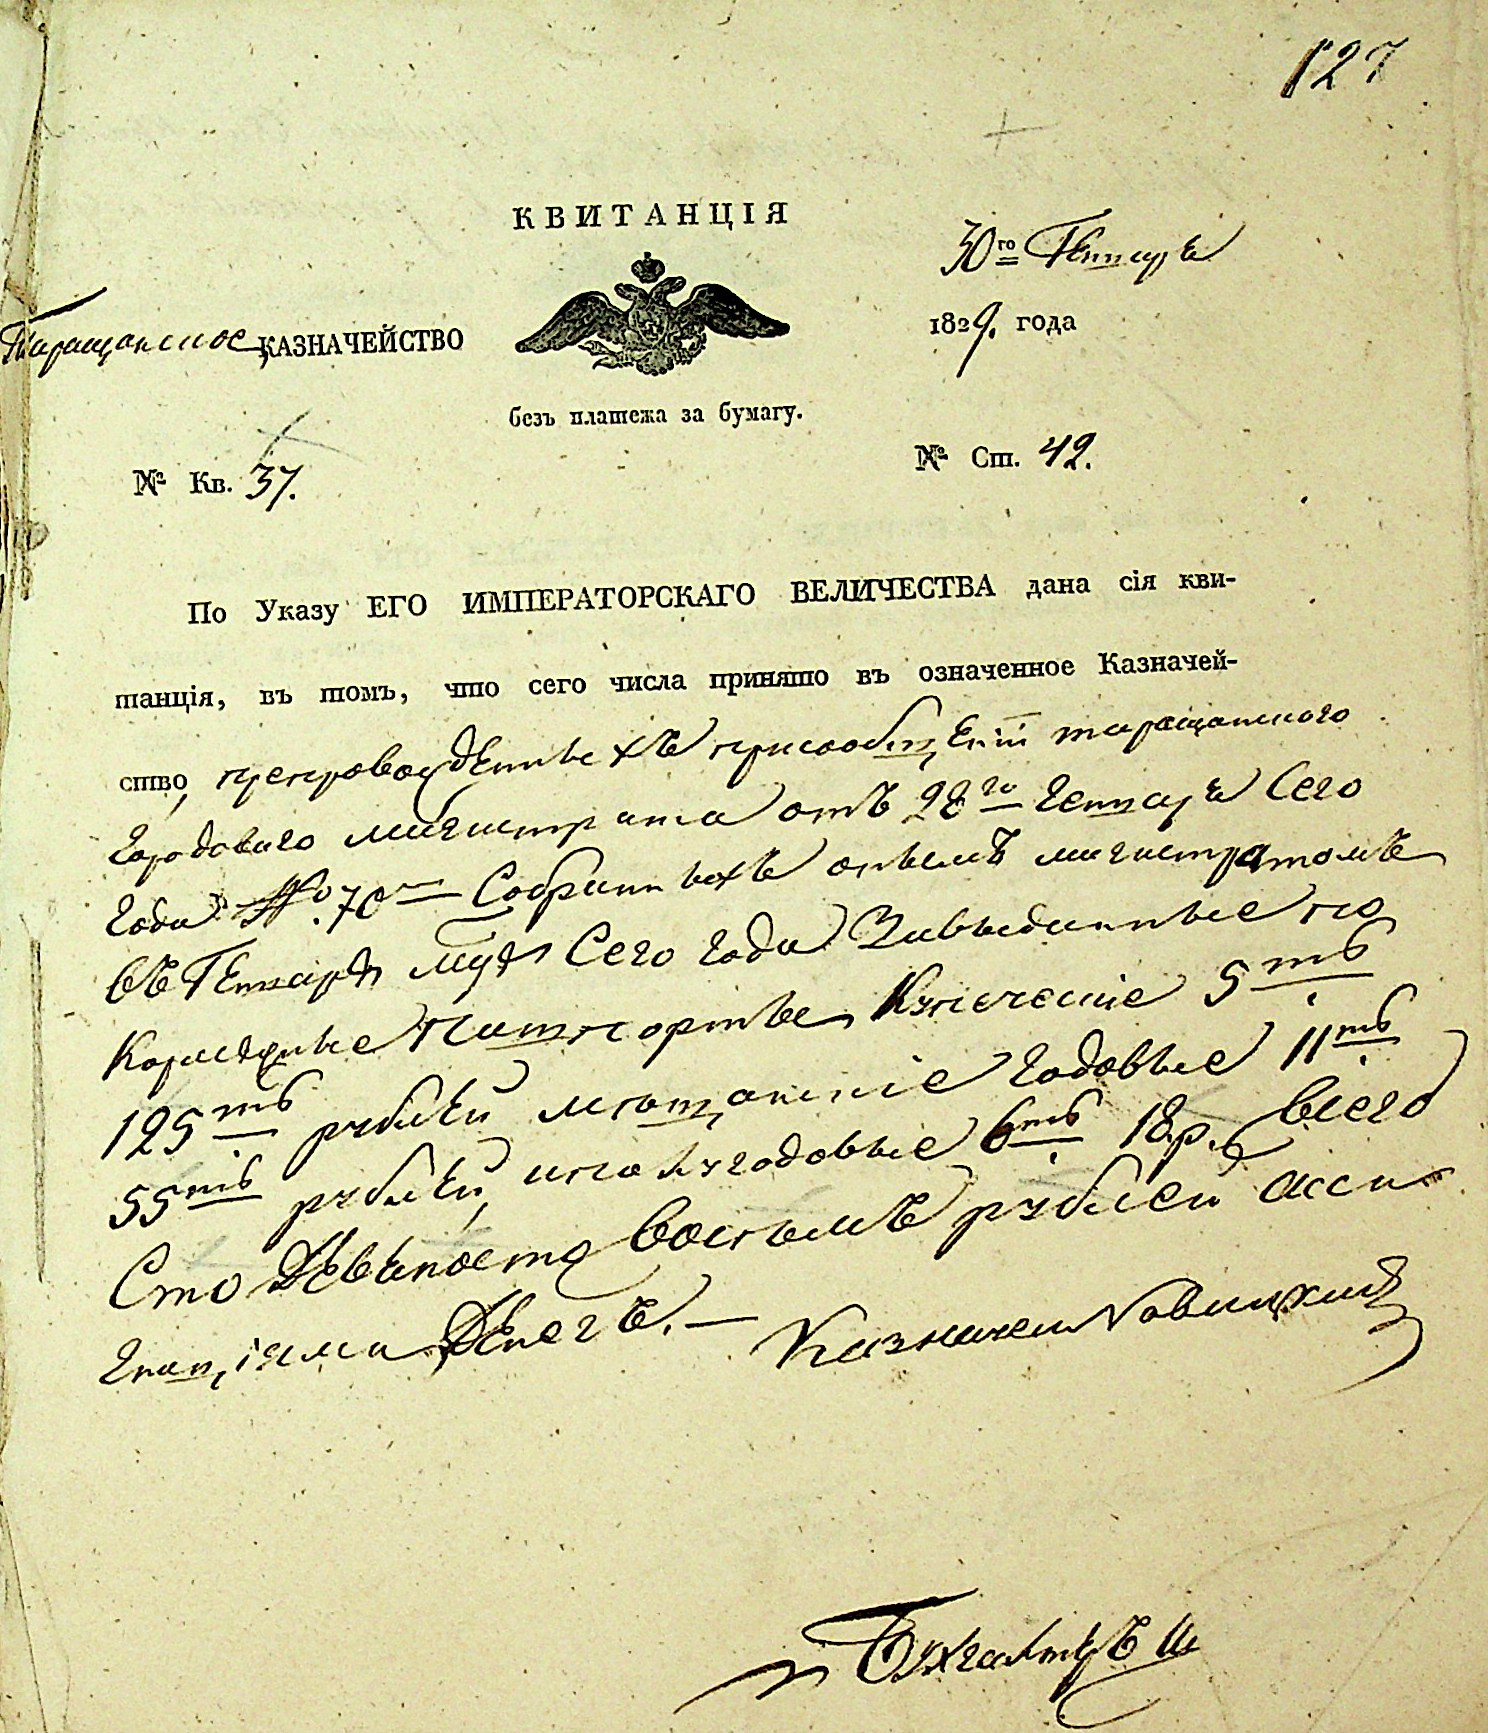 127
КВИТАНЦІЯ
30го Генваря
Таращанское КАЗНАЧЕЙСТВО
1829. года
безъ платежа за бумагу.
№ Кв. 37.
№ Ст. 42.
По Указу ЕГО ИМПЕРАТОРСКАГО ВЕЛИЧЕСТВА дана сія кви-
танція, въ томъ, что сего числа принято въ означенное Казначей-
ство, препровожденныхъ присообщеніи таращанского
городового магистрата отъ 28го Генваря Сего
Года №. 70 Собранныхъ онымъ магистратомъ
въ Генваре Сего года Завыданные по
Кормежные Пашпорты, Купеческіе 5ть
125ть рублей мещанскіе годовые 11ть
55ть рублей, иполугодовые 6ть 18р. всего
Сто Девяносто восемь рублей асси
гнаціями Денегъ. —
Казначей Новицкий
Бухгалтеръ